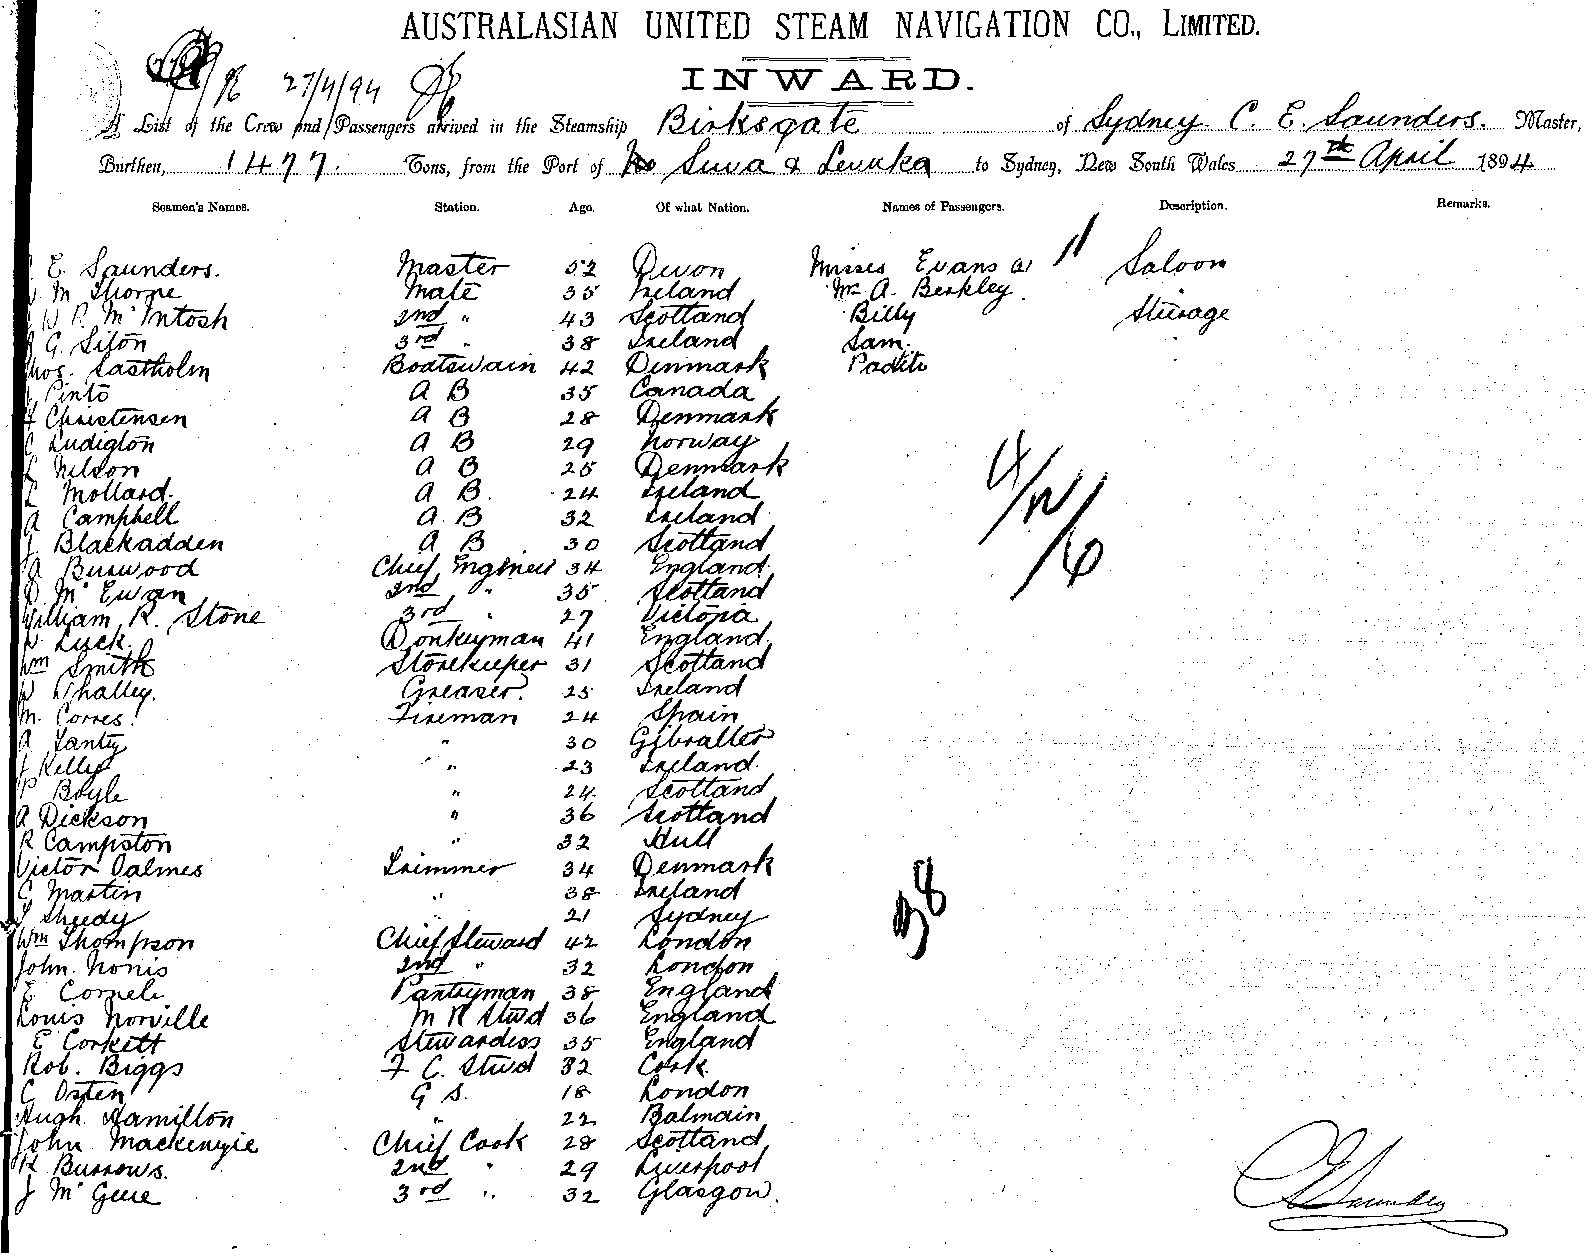 AUSTRALASIAN UNITED STEAM NAVIGATION CO., LIMITED.
27/4/94
INWARD.
A List of the Crew and Passengers arrived in the Steamship Birksgate of Sydney C. E. Saunders. Master,
Burthen, 1477. Tons, from the Port of Suva & Levuka to Sydney, New South Wales 27th April 1894
Seamen's Names. Station. Age. Of what Nation. Names of Passengers. Description. Remarks.
E. Saunders. Master 52 Devon Misses Evans 2 Saloon
M Thorpe Mate 35 Ireland Mr A. Berkley.
McIntosh 2nd " 43 Scotland Billy Steerage
G. Sifon 3rd " 38 Ireland Sam.
Thos. Sastholm Boatswain 42 Denmark
Pinto A B 35 Canada
Christensen A B 28 Denmark
Ludigton A B 29 Norway
Nilson A B 25 Denmark
Mollard. A B. 24 Ireland
A Campbell A B 32 Ireland
J. Blackadden A B 30 Scotland
Burwood Chief Engineer 34 England
D. McEwan 2nd " 35 Scotland
William R. Stone 3rd " 27 Victoria
Luck. Donkeyman 41 England.
Wm Smith Storekeeper 31 Scotland
Whalley. Greaser. 25 Ireland
M. Corres. Fireman 24 Spain
A Santy " 30 Gibralter
J Kelly " 23 Ireland.
P Boyle " 24 Scotland
A Dickson " 36 Scotland
R Campston " 32 Hull
Victor Dalmes Trimmer 34 Denmark
C Martin " 38 Ireland
Sheedy " 21 Sydney
Wm Thompson Chief Steward 42 London
John Norris 2nd " 32 London
E Corneli Pantryman 38 England
Louis Norville M R Stwd 36 England
E Corkett Stewardess 35 England
Rob. Biggs F C. Stwd 32 Cork.
C Osten G S. 18 London
Hugh Hamilton " 22 Balmain
John Mackenzie Chief Cook 28 Scotland
H Burrows. 2nd " 29 Liverpool
J McGuie 3rd " 32 Glasgow.
38
C E Saunders